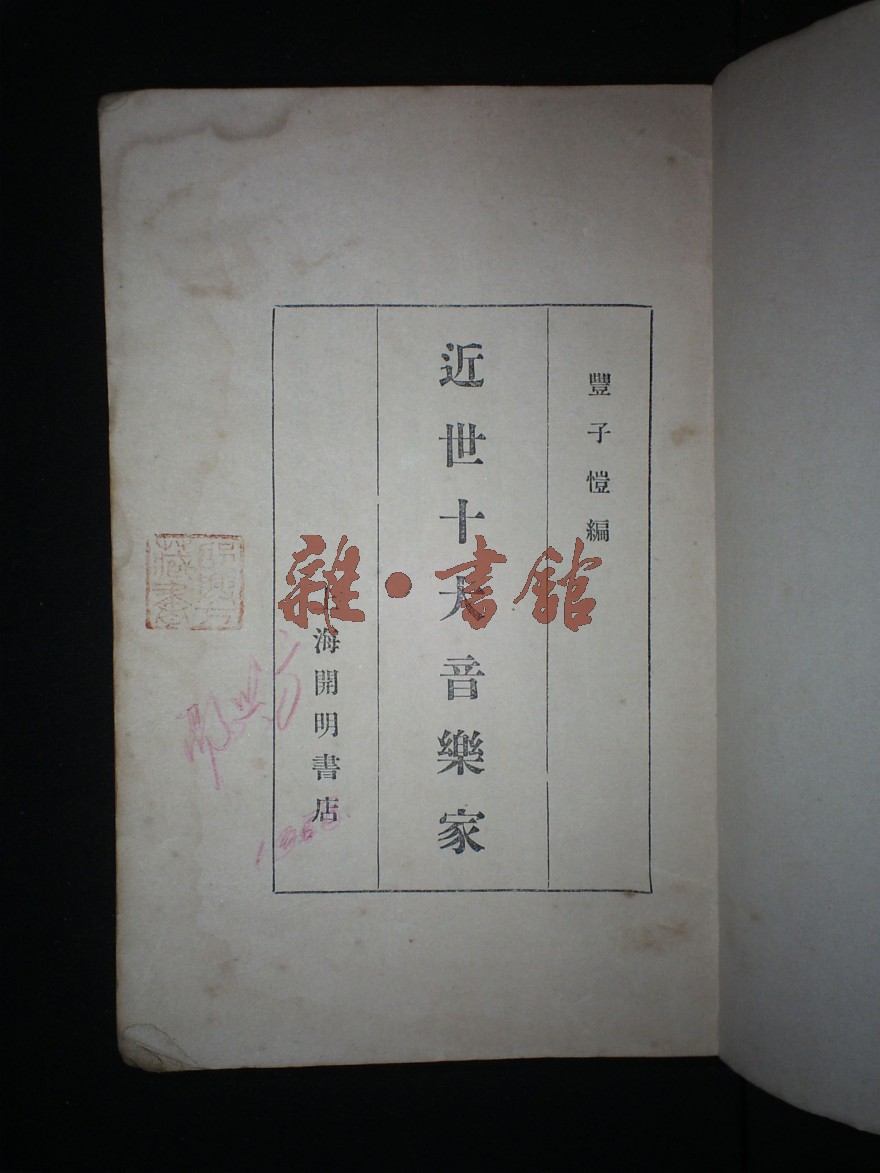 豐子愷編
近世十大音樂家
上海開明書店
雜·書館
藏書